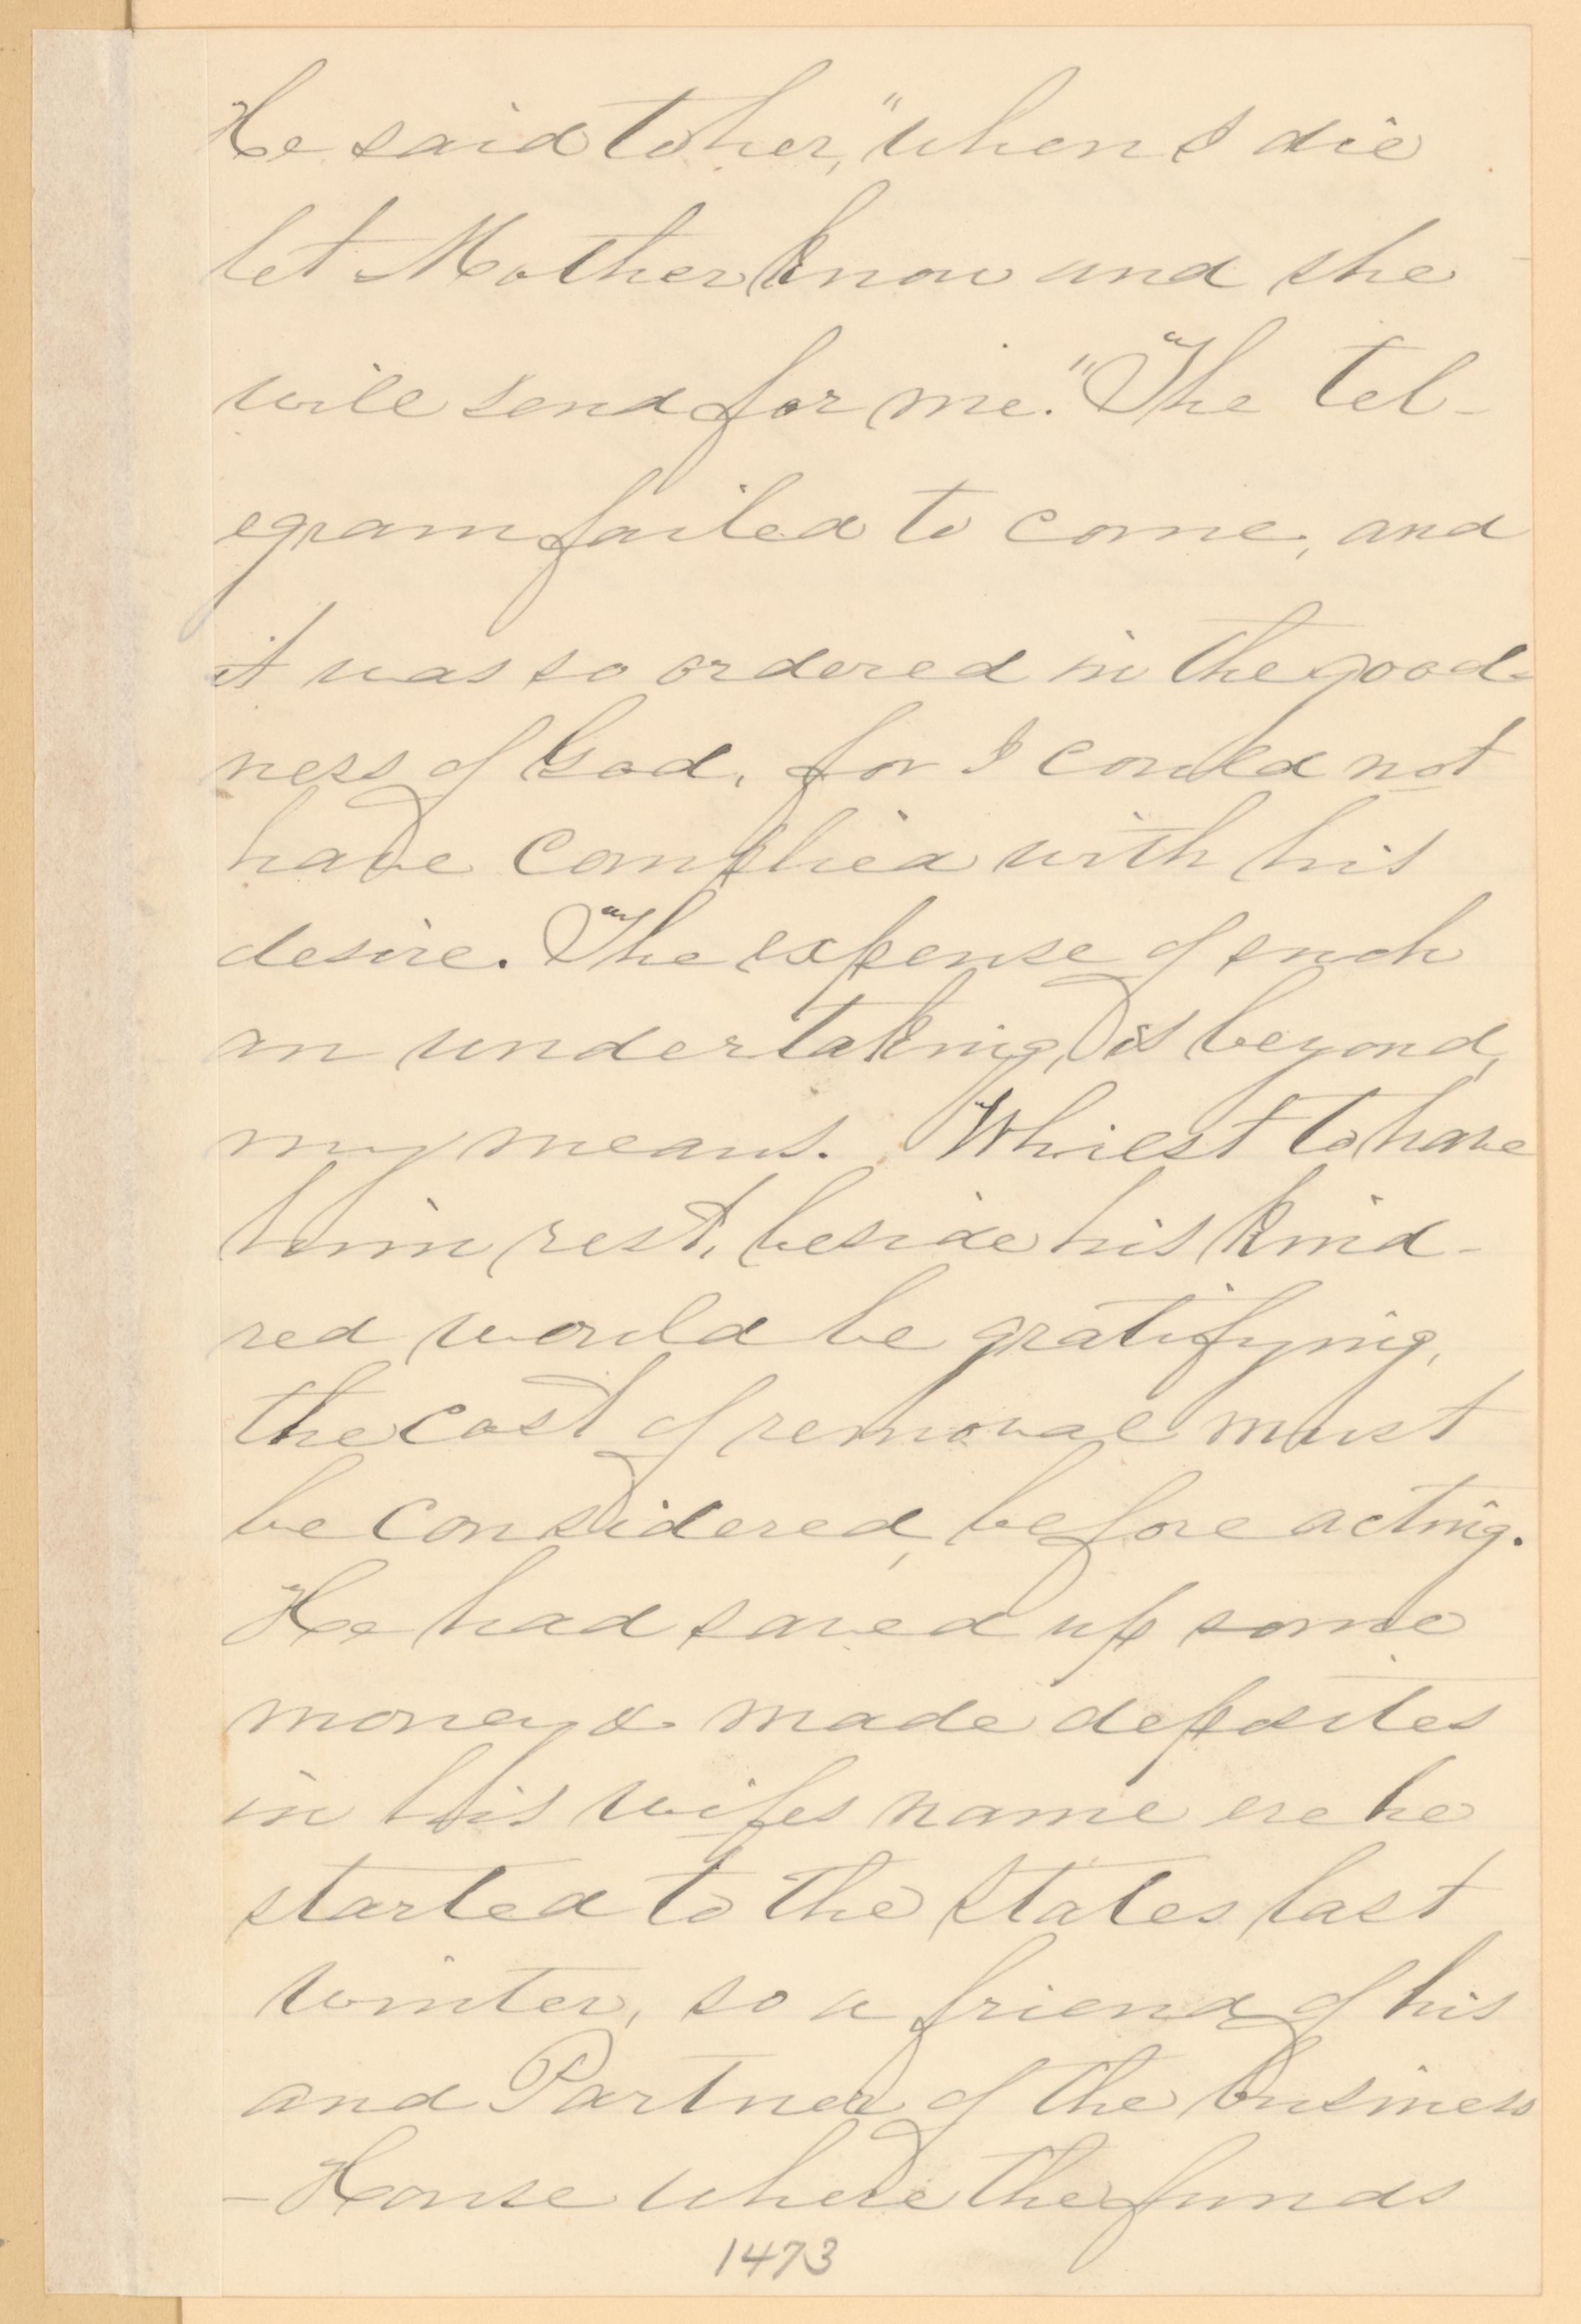 He said to her, "when I die
let Mother know and she
will send for me." The tel-
egram failed to come, and
it was so ordered in the good-
ness of God, for I could not
have complied with his
desire. The expense of such
an undertaking, is beyond,
my means. Whilst to have
him rest, beside his kind-
red would be gratifying,
the cost of removal must
be considered, before acting.
He had saved up some
money & made deposites
in his wifes name ere he
started to the States last
winter, so a friend of his
and Partner of the business
-House where the funds
1473